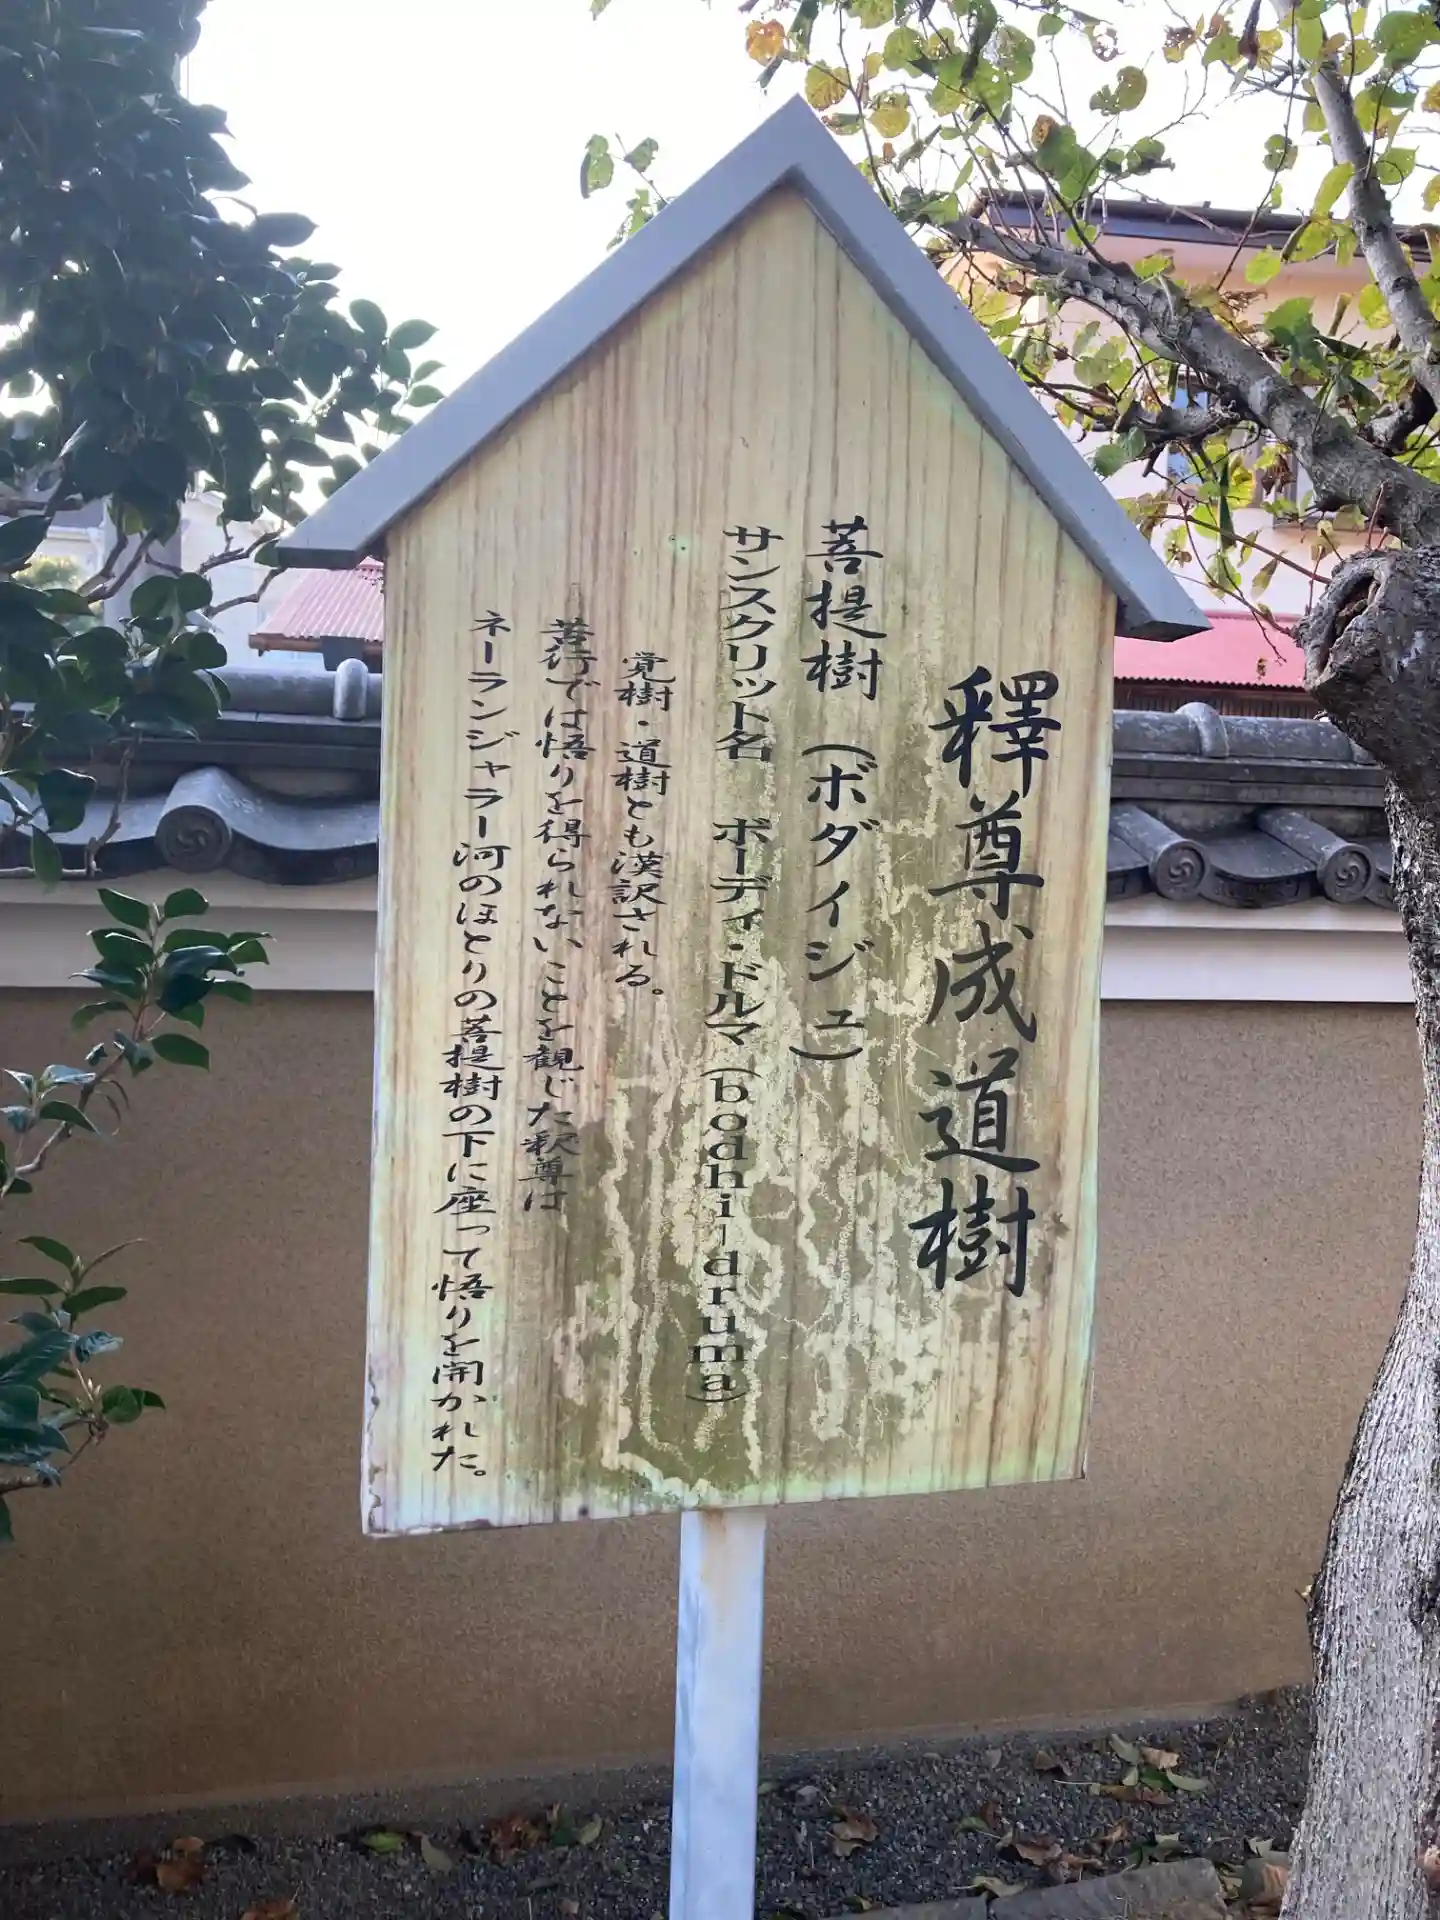 釋尊成道樹
菩提樹（ボダイジュ）
サンスクリット名　ボーディ・ドルマ（bodhi-druma）
覚樹・道樹とも漢訳される。
苦行では悟りを得られないことを観じた釈尊は
ネーランジャラー河のほとりの菩提樹の下に座って悟りを開かれた。